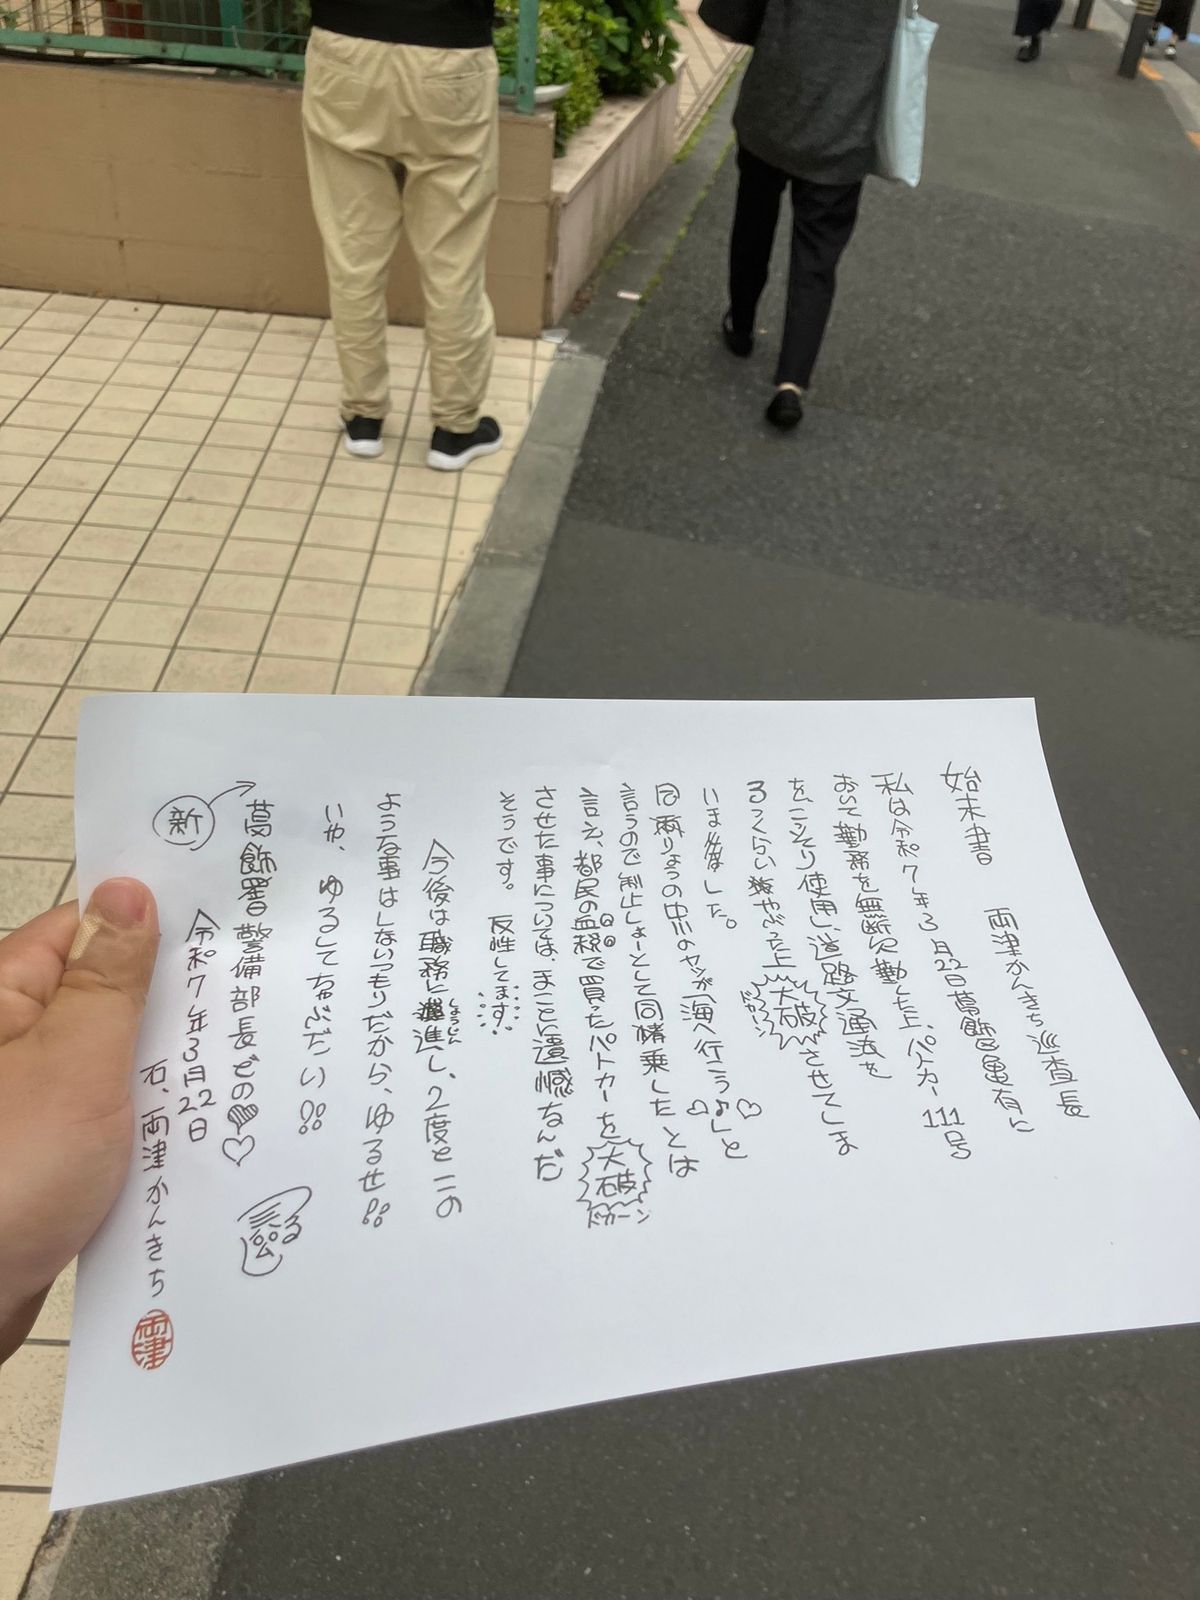 始末書　両津かんきち巡査長
私は令和7年3月22日葛飾区亀有に
おいて勤務を無断欠勤した上、パトカー111号
を、こっそり使用し、道路交通法を
るっくらい破った上大破させてしま
ドガーン
いました。
同両りょうの中川のヤツが「海へ行こう♪」と
言うので制止しよーとして同情乗したとは
言え、都民の血税で買ったパトカーを大破
ドガーン
させた事については、まことに遺憾なんだ
そうです。反性してます
今後は職務に邁進し、2度とこの
しょうじん
ような事はしないつもりだから、ゆるせ!!
いや、ゆるしてちょぶだい!!
葛飾署警備部長どの♥♡
新
令和7年3月22日
石、両津かんきち
両津